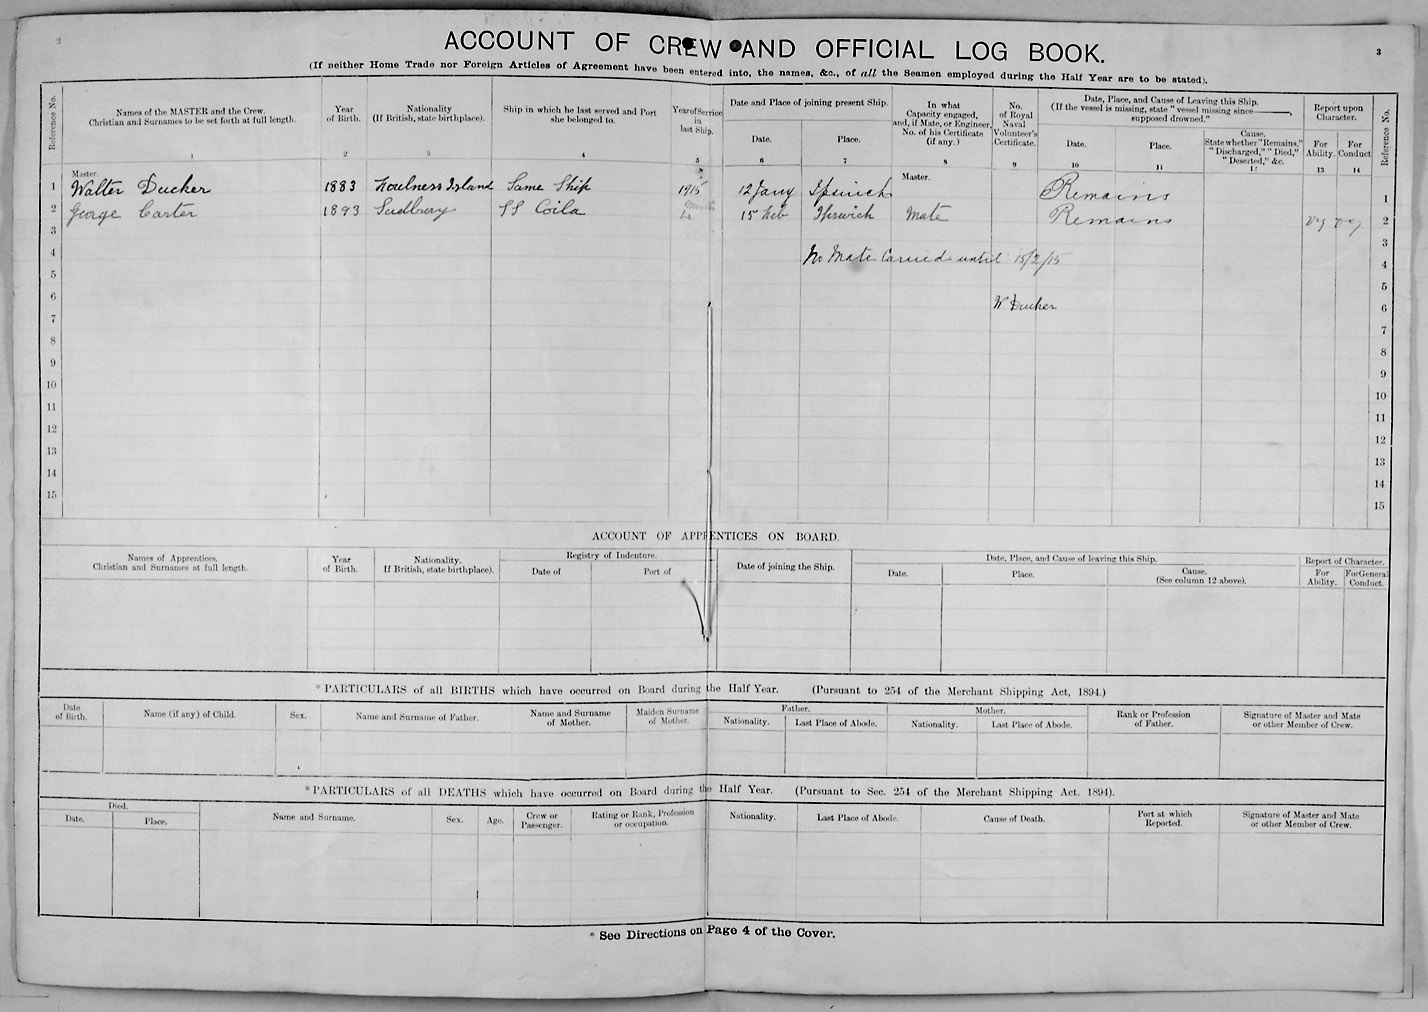 2
3
ACCOUNT OF CREW AND OFFICIAL LOG BOOK.
(If neither Home Trade nor Foreign Articles of Agreement have been entered into, the names, &c., of all the Seamen employed during the Half Year are to be stated).
Reference No.
Names of the MASTER and the Crew.
Christian and Surnames to be set forth at full length.
1
Year
of Birth.
2
Nationality
(If British, state birthplace).
3
Ship in which he last served and Port
she belonged to.
4
Year of Service
in
last Ship.
5
Date and Place of joining present Ship.
Date.
6
Place.
7
In what
Capacity engaged,
and, if Mate, or Engineer,
No. of his Certificate
(if any.)
8
No.
of Royal
Naval
Volunteer's
Certificate.
9
Date, Place, and Cause of Leaving this Ship.
(If the vessel is missing, state "vessel missing since ———, supposed drowned."
Date.
10
Place.
11
Cause.
State whether "Remains,"
"Discharged," "Died,"
"Deserted," &c.
12
Report upon
Character.
For
Ability.
13
For
Conduct
14
Reference No.
Master.
Master.
1 Walter Ducker 1883 Foulness Island Same Ship 1915 12 Jany Ipswich Remains 1
2 George Carter 1893 Sudbury SS Coila Months 15 Feb Ipswich Mate Remains Vg Vg 2
3 3
4 No Mate Carried until 15/2/15 4
5 5
6 W Ducker 6
7 7
8 8
9 9
10 10
11 11
12 12
13 13
14 14
15 15
ACCOUNT OF APPRENTICES ON BOARD.
Names of Apprentices.
Christian and Surnames at full length.
Year
of Birth.
Nationality.
If British, state birthplace).
Registry of Indenture.
Date of
Port of
Date of joining the Ship.
Date, Place, and Cause of leaving this Ship.
Date.
Place.
Cause.
(See column 12 above).
Report of Character.
For
Ability.
For General
Conduct.
*PARTICULARS of all BIRTHS which have occurred on Board during the Half Year. (Pursuant to 254 of the Merchant Shipping Act, 1894.)
Date
of Birth.
Name (if any) of Child.
Sex.
Name and Surname of Father.
Name and Surname
of Mother.
Maiden Surname
of Mother.
Father.
Nationality.
Last Place of Abode.
Mother.
Nationality.
Last Place of Abode.
Rank or Profession
of Father.
Signature of Master and Mate
or other Member of Crew.
*PARTICULARS of all DEATHS which have occurred on Board during the Half Year. (Pursuant to Sec. 254 of the Merchant Shipping Act, 1894).
Died.
Date.
Place.
Name and Surname.
Sex.
Age.
Crew or
Passenger.
Rating or Rank, Profession
or occupation.
Nationality.
Last Place of Abode.
Cause of Death.
Port at which
Reported.
Signature of Master and Mate
or other Member of Crew.
* See Directions on Page 4 of the Cover.